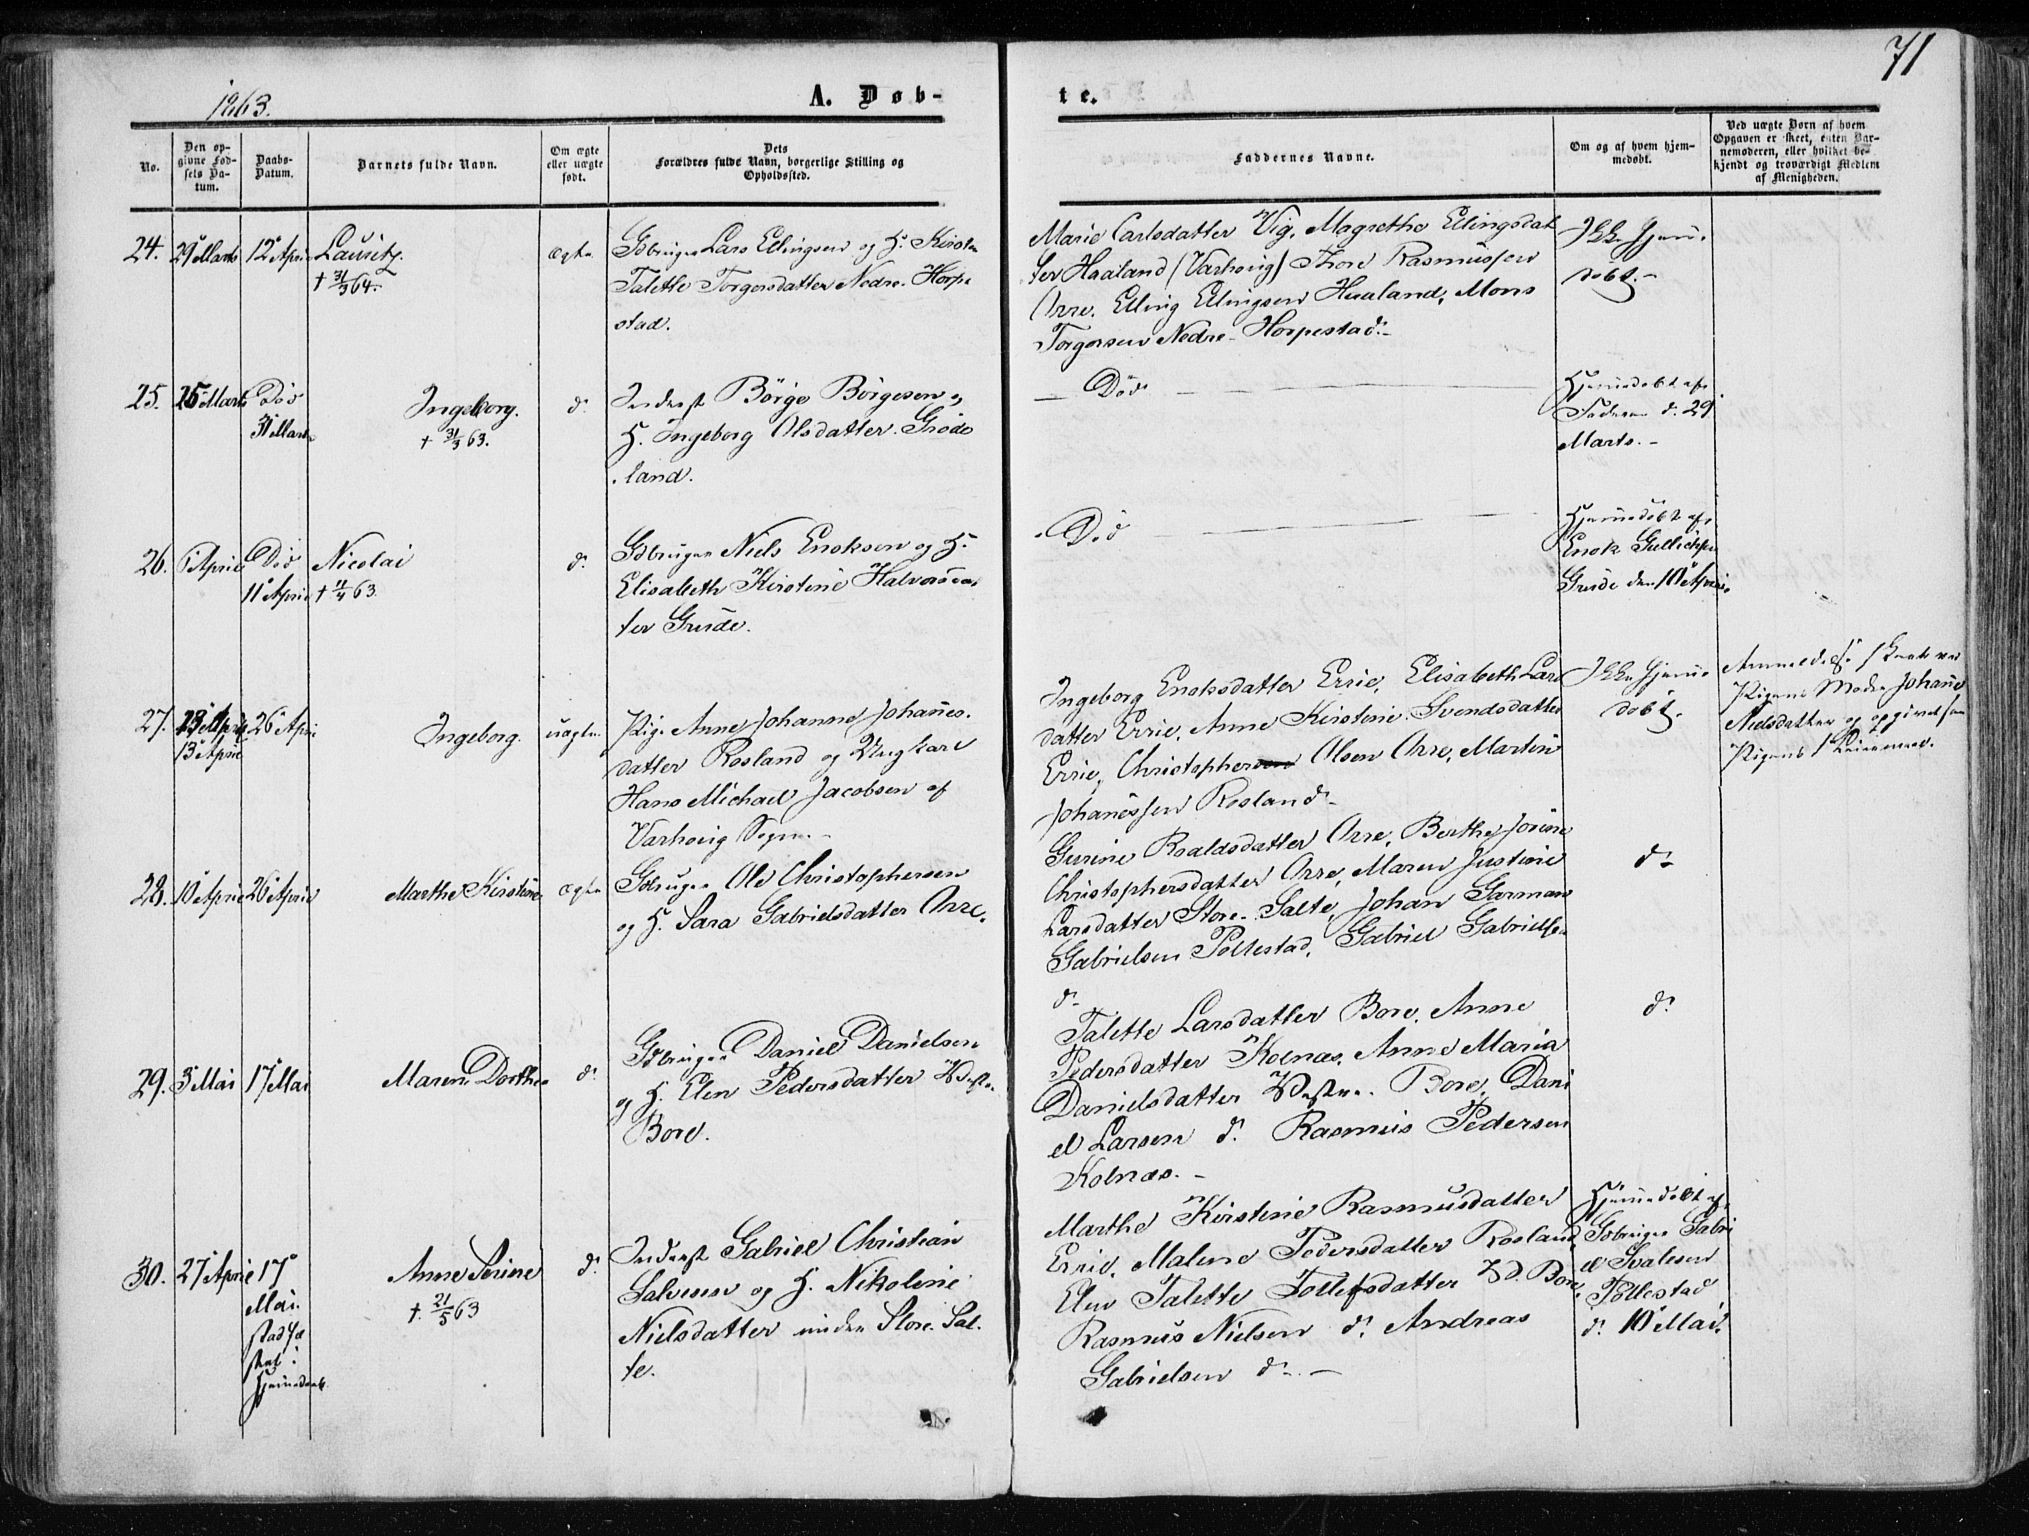 71
1863.
A. Døb-
te.
No.
Den op-
givne Fød-
sels Da-
tum.
Daabs-
Datum.
Barnets fulde Navn.
Om ægte
eller uægte
født.
Dets
Forældres fulde Navn, borgerlige Stilling og
Opholdssted.
Faddernes Navne.
Om og af hvem hjem-
medøbt.
Ved uægte Børn af hvem
Opgaven er skeet, enten Bar-
nemoderen, eller hvilket be-
kjendt og troværdigt Medlem
af Menigheden.
24.
29 Marts
12 April
Lauritz.
† 31/3 64.
ægte
Gdbruger Lars Ellingsen og H. Kirstn
Talette Torgersdatter Nedre-Horpe
stad.
Marie Carlsdatter Vig, Magrethe Ellingsdat
ter Haaland (Varhoug) Thore Rasmussen
Orre, Elling Ellingsen Haaland, Mons
Torgersen Nedre-Horpestad.-
Ikke hjem-
døbt.-
25.
25 Marts
Død
31 Marts
Ingeborg.
† 31/3 63.
d.
Inderst Børge Børgesen og
H. Ingeborg Olsdatter Grøde
land.
- Død
Hjemmedøbt af
Faderen d. 29
Marts.-
26.
1 April
Død
11 April
Nicolai
† 11/4 63.
d.
Gdbruger Niels Enoksen og H.
Elisabeth Kirstine Halvorsdat
ter Grude.
- Død
Hjemmedøbt af
Enok Gullichsen
Grude den 10 April.
27.
13 April
26 April
Ingeborg.
uægte
Pige Anne Johanne Johannes-
datter Rosland og Ungkarl
Hans Michael Jacobsen af
Varhoug Sogn.-
Ingeborg Enoksdatter Errie, Elisabeth Lars
datter Errie, Anne Kirstine Svendsdatter
Errie, Christopher Olsen Orre, Martin
Johanessen Rosland.-
Ikke hjemme
døbt.
Anmeldelse skeet ved
Pigens Moder Johanne
Nielsdatter og opgivelsen
Pigens
28.
10 April
26 April
Marthe Kirstine
ægte
Gdbruger Ole Christophersen
og H. Sara Gabrielsdatter Orre.
Gurine Roaldsdatter Orre, Berthe Jorine
Christophersdatter Orre, Maren Justine
Larsdatter Store-Salte, Johan Garman
Gabrielsen Pollestad, Gabriel Gabrielsen
d.-
d.-
29.
3 Mai
17 Mai
Maren Dorthea
d.
Gdbruger Daniel Danielsen
og H. Elen Pedersdatter Vestre
Bore.
Talette Larsdatter Bore, Anne
Pedersdatter Kolnæs, Anne Maria
Danielsdatter Vestre Bore, Dani
el Larsen d. Rasmus Pedersen
Kolnæs.-
d.
30.
27 April
17
Mai
stadfæ
stet i
Hjemmedaab
Anne Serine
† 21/5 63
d.
Inderst Gabriel Christian
Salvesen og H. Nikoline
Nielsdatter under Store-Sal-
te.
Marthe Kirstine Rasmusdatter
Errie, Malene Pedersdatter Rosland,
Elen Talette Tollefsdatter Bore,
Rasmus Nielsen d. Andreas
Gabrielsen d.-
Hjemmedøbt af
Gdbruger Gabri
el Svalesen
Pollestad
d. 10 Mai.